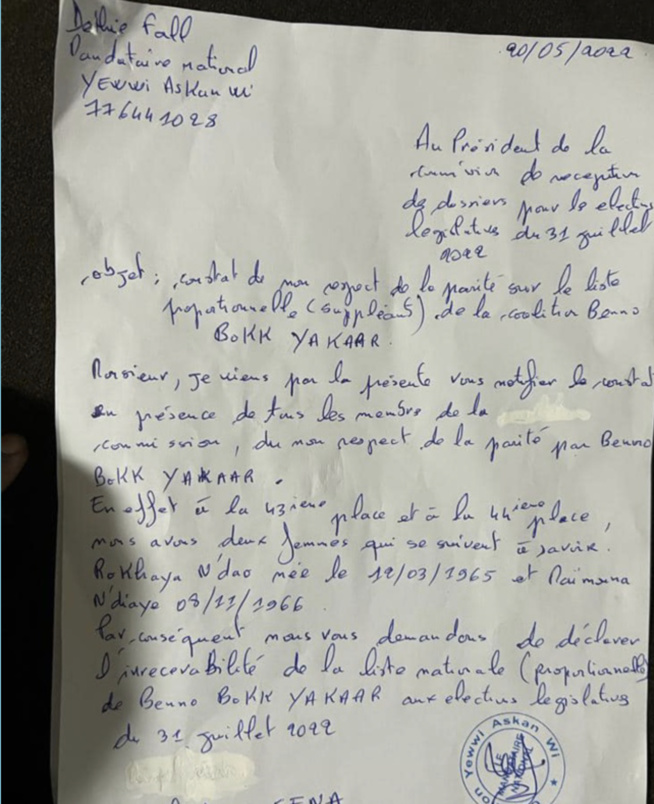 Dethie Fall
Mandataire national
YEWWI ASKan Wi
776441028
20/05/2022
Au Président de la
commission de reception
de dossiers pour les elections
legislatives du 31 juillet
2022
objet : constat de non respect de la parité sur la liste
proportionnelle (suppléant) de la coalition Benno
BOKK YAKAAR.
Monsieur, je viens par la présente vous notifier le constat
en présence de tous les membre de la
commission, du non respect de la parité par Benno
BOKK YAKAAR.
En effet à la 43ieme place et à la 44ieme place,
nous avons deux femmes qui se suivent à savoir.
Rokhaya N'dao née le 12/03/1965 et Maïmouna
N'diaye 08/11/1966
Par conséquent nous vous demandons de déclarer
l'irrecevabilité de la liste nationale (proportionnelle)
de Benno BOKK YAKAAR aux elections legislatives
du 31 juillet 2022
Yewwi Askan Wi
MANDATAIRE
NATIONAL